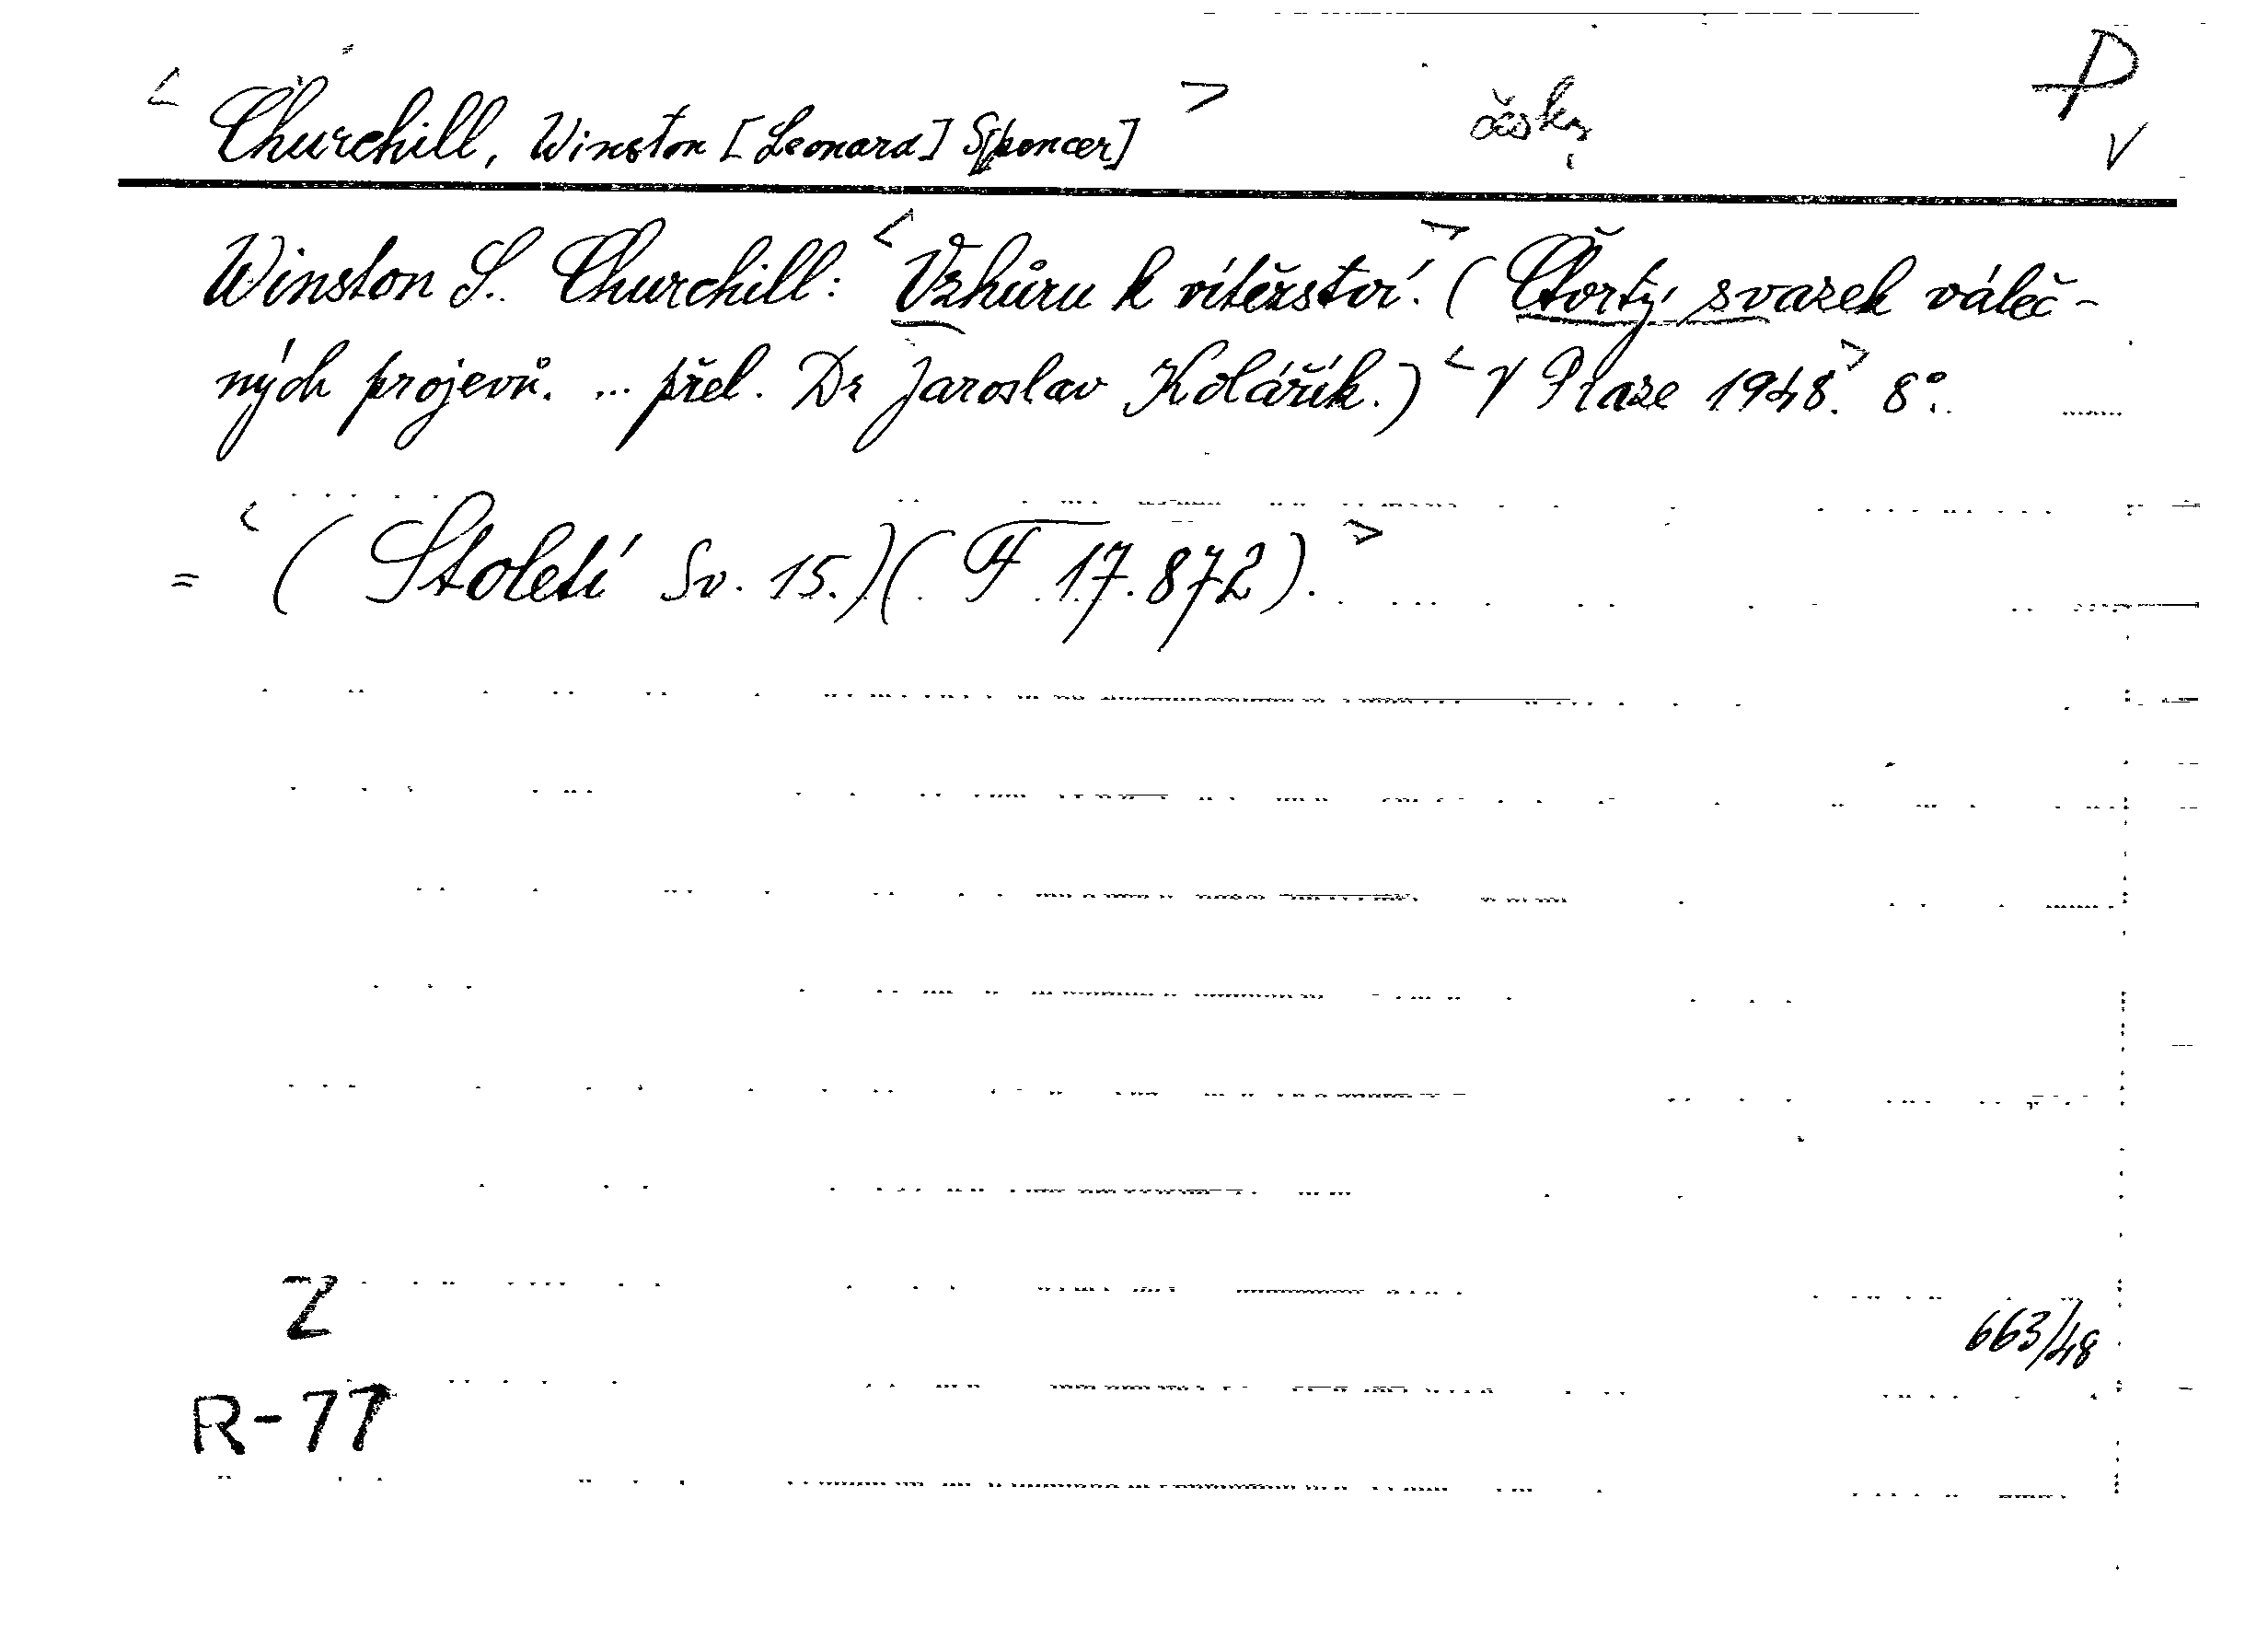 < Churchill, Winston [Leonard] S[pencer] > česky P
V
Winston S. Churchill: < Vzhůru k vítězství. > (Čtvrtý svazek váleč-
ných projevů. ... přel. Dr Jaroslav Kolářík.) < V Praze 1948. > 8°.
= < (Století Sv. 15.)( F 17.872). >
Z
663/48
R-77